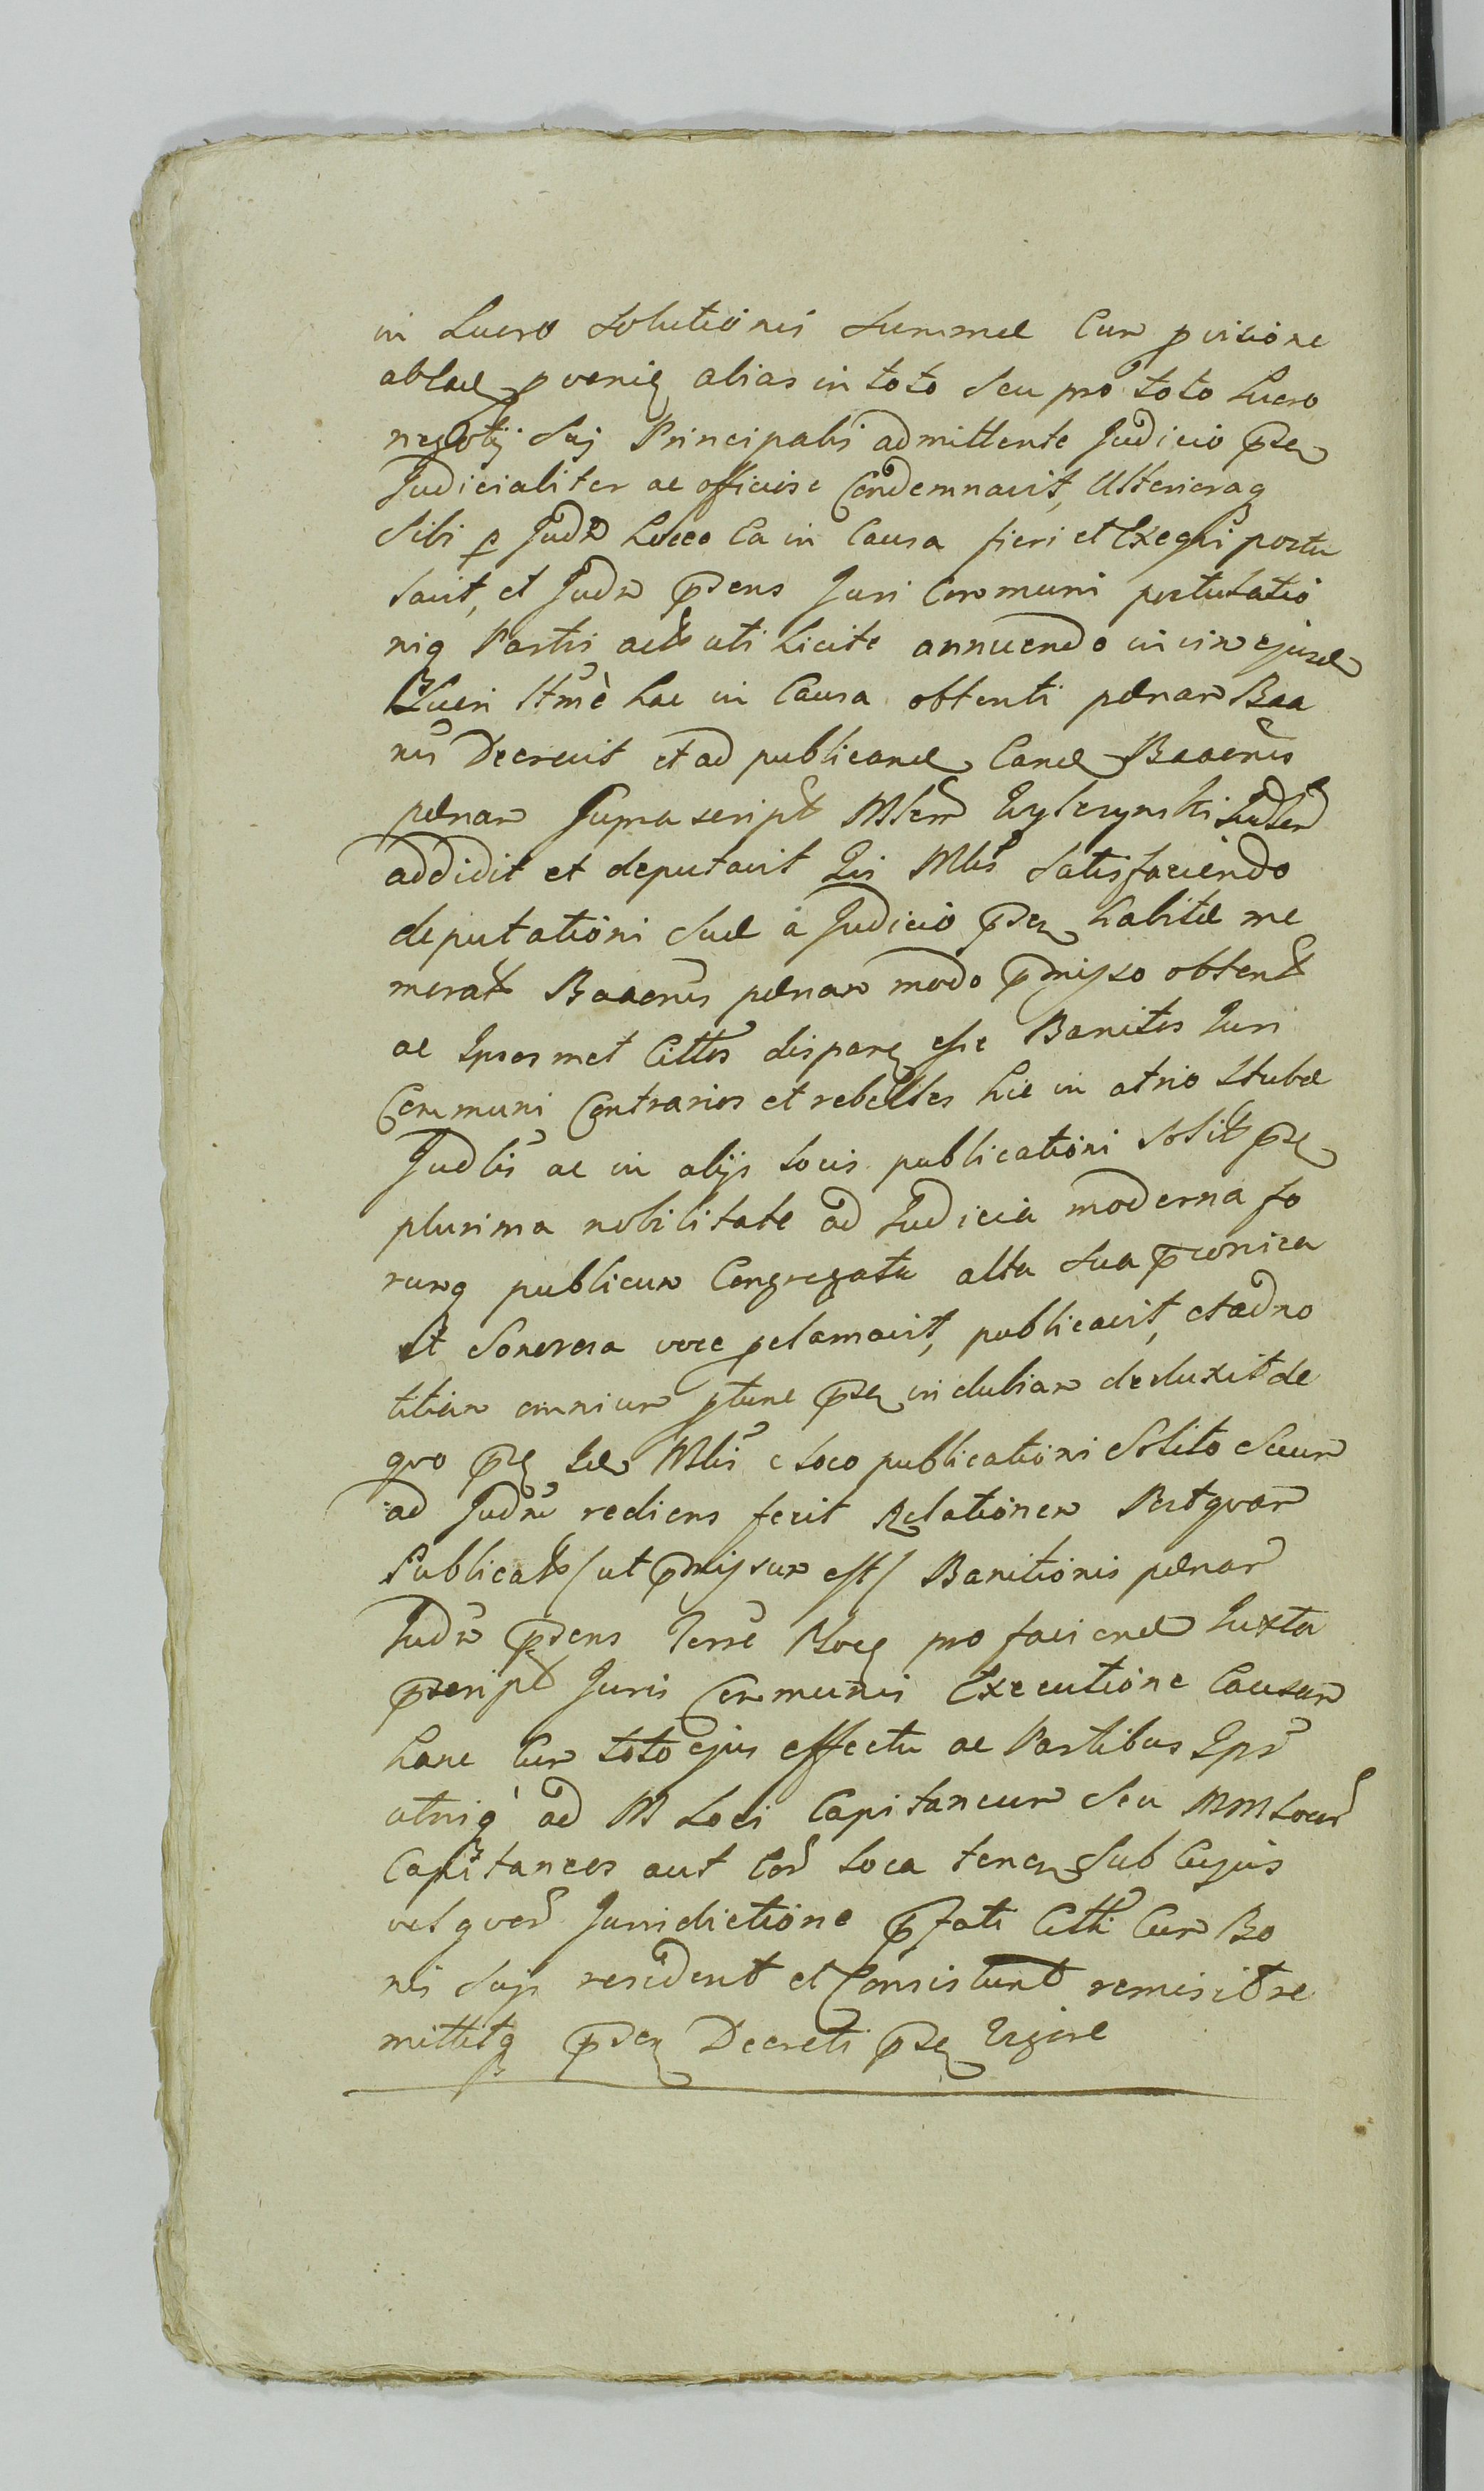 in Lucro Solutionis Summæ Cum pvisione
ablaæ pveniẽ alias in toto Seu pro toto Lucro
negotÿ Suj Principalis admittente Judicio pse
Judicialiter ac officiose Condemnavit, Ulterioraq
Sibi p Judm Locco Ca in Causa fieri et Exequi postu
lavit, et Judm psens Juri Communi postulatio
niq Partis act uti Licite annuendo in vim ejusd
Lucri Ittmè hac in Causa obtenti pænam Baa
nis Decrevit et ad publicand Eand Baaonis
pænam Supra script Mlem Wylezynski
addidit et deputavit Qui Mlis Satisfaciendo
deputationi Suæ à Judicio psen habitæ me
morat Baaonis pænam modo pmisso obtent
ac Ipsosmet Cittos disparen esse Banitos Juri
Communi Contrarios et rebelles hic in atrio Stubæ
Judlis ac in alijs Locis publicationi Solit pse
plurima nobilitate ad Judicia moderna fo
rumq publicum Congregata alta Sua pconica
et Sonorosa voce pclamavit, publicavit, et ad no
titiam omnium ptunc psen indubiam deduxit de
quo pse Idem Mlis e Loco publicationi Solito Suum
ad Judm rediens fecit Relationem Postquam
Publicat / ut pmissum est / Banitionis pænam
Judm psens Terre pro faciend Juxta
pscript Juris Communis Executione Causam
hanc Cum toto ejus effectu ac Partibus Ips
utrisq ad M Loci Capitaneum Seu MM Locor
Capitaneos aut Eor Loca tenen Sub Cujus
vel quor Jurisdictione pfati Citti Cum Bo
nis Sujs resident et Consistunt remisit re
mittitq psen Decreti pse Vigore